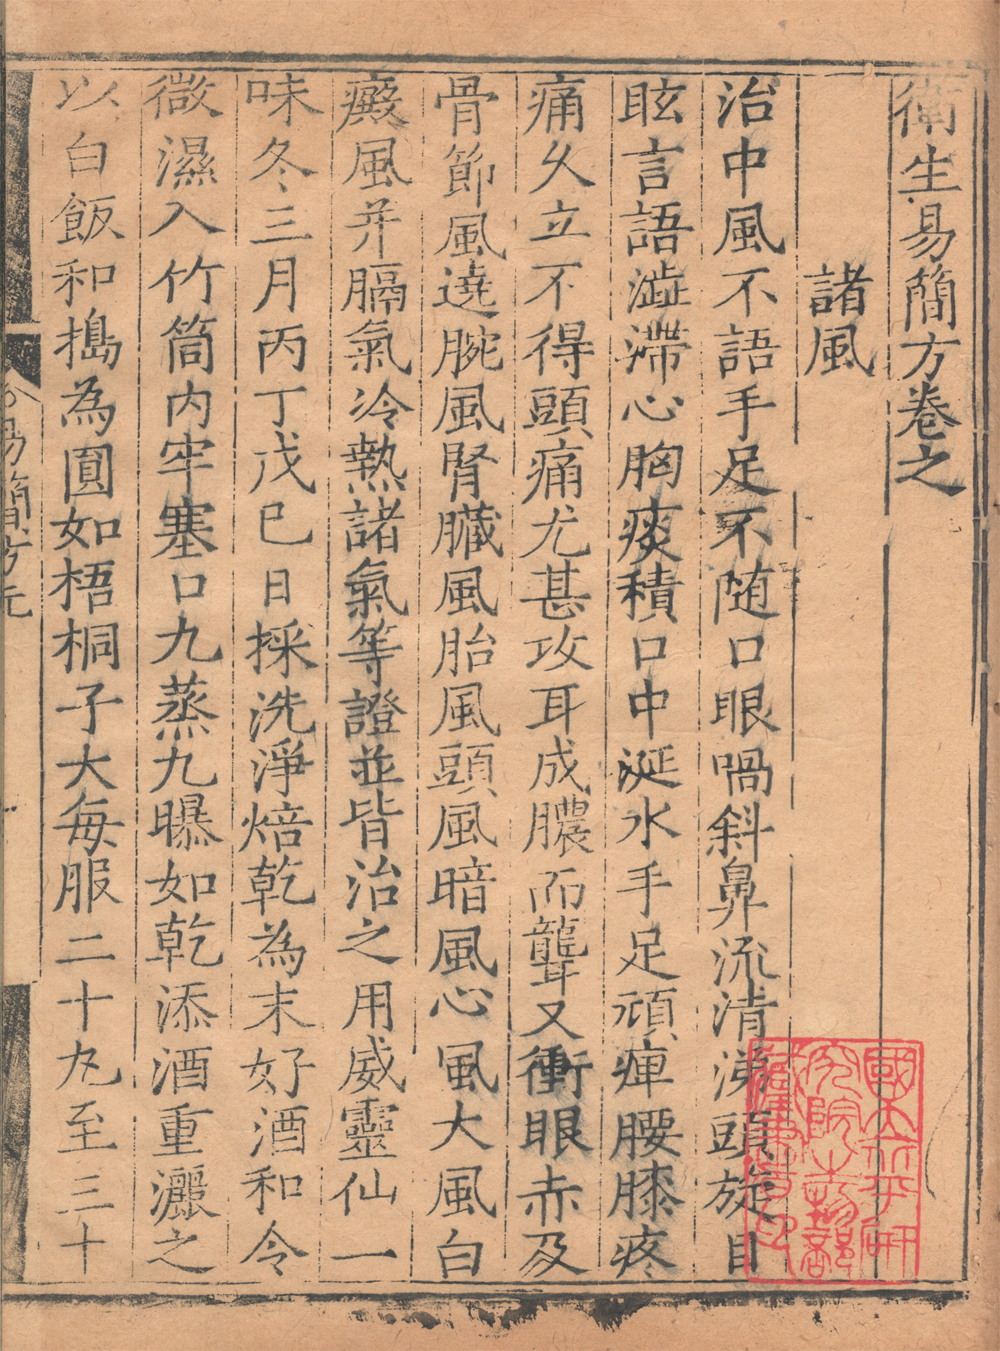 衛生易簡方卷之
諸風
治中風不語手足不随口眼喎斜鼻流清涕頭旋目
眩言語澁滯心胸痰積口中涎水手足頑痺腰膝疼
痛久立不得頭痛尤甚攻耳成膿而聾又衝眼赤及
骨節風遶腕風腎臓風胎風頭風暗風心風大風白
癜風并膈氣冷熱諸氣等證並皆治之用威靈仙一
味冬三月丙丁戊巳日採洗淨焙乾為末好酒和令
微濕入竹筒内牢塞口九蒸九曝如乾添酒重灑之
以白飯和搗為圓如梧桐子大每服二十九至三十
易簡方元